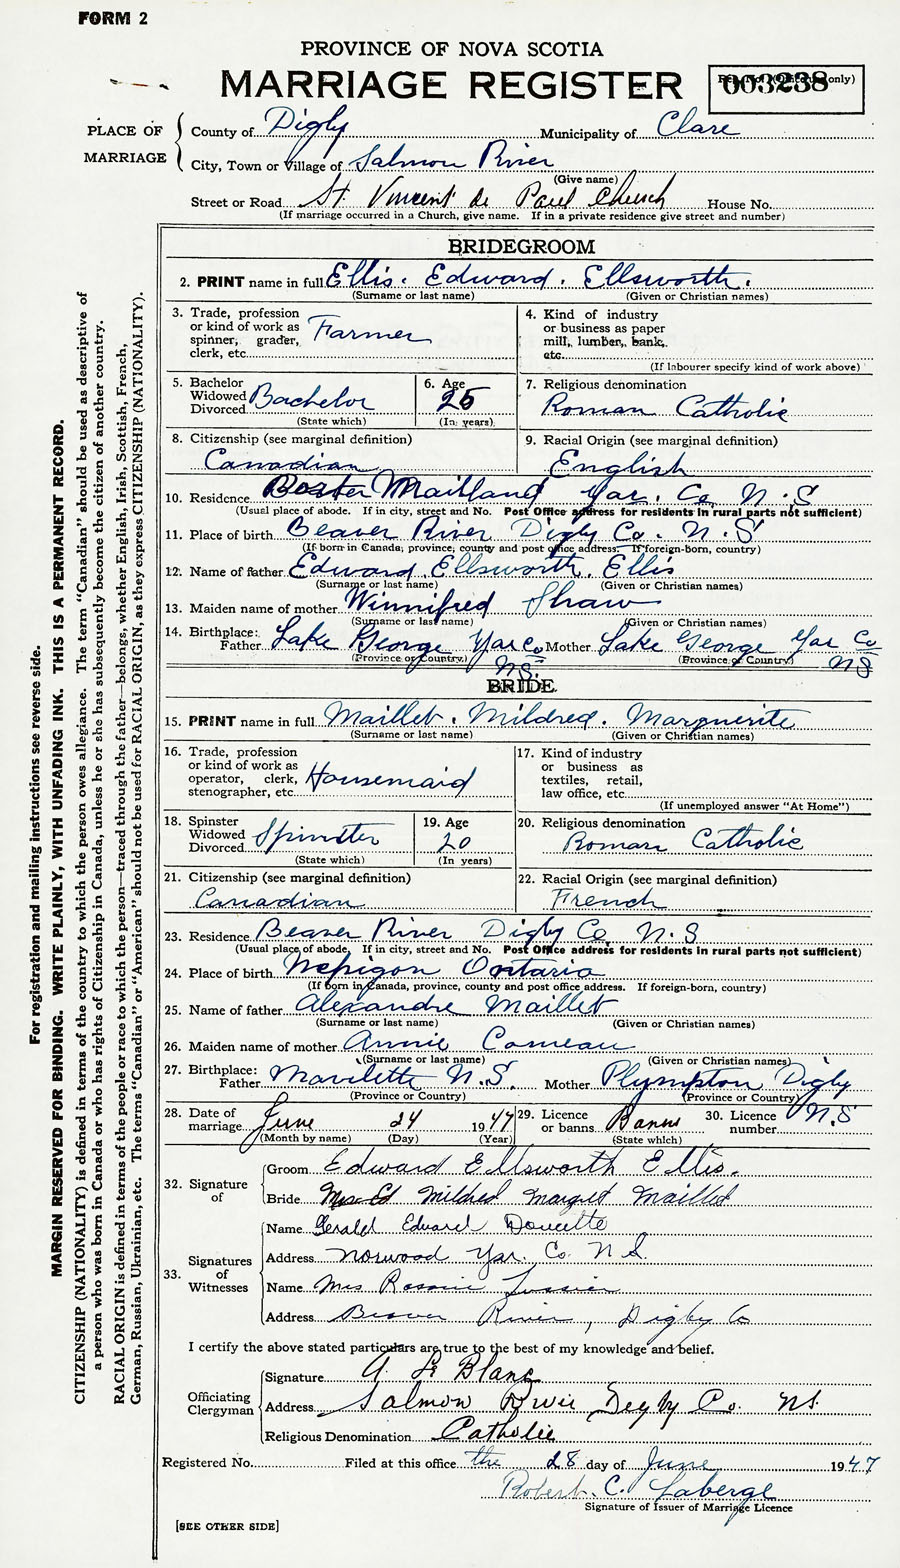 FORM 2
PROVINCE OF NOVA SCOTIA
MARRIAGE REGISTER
003238
PLACE OF MARRIAGE
County of Digby Municipality of Clare
City, Town or Village of Salmon River
(Give name)
Street or Road St. Vincent de Paul Church House No.
(If marriage occurred in a Church, give name. If in a private residence give street and number)
BRIDEGROOM
2. PRINT name in full Ellis. Edward. Ellsworth.
(Surname or last name) (Given or Christian names)
3. Trade, profession or kind of work as spinner, grader, clerk, etc. Farmer
4. Kind of industry or business as paper mill, lumber, bank, etc.
(If labourer specify kind of work above)
5. Bachelor Widowed Divorced Bachelor
(State which)
6. Age 25
(In years)
7. Religious denomination
Roman Catholic
8. Citizenship (see marginal definition)
Canadian
9. Racial Origin (see marginal definition)
English
10. Residence Maitland Yar. Co. N.S
(Usual place of abode. If in city, street and No. Post Office address for residents in rural parts not sufficient)
11. Place of birth Beaver River Digby Co. N.S
(If born in Canada, province, county and post office address. If foreign-born, country)
12. Name of father Edward. Ellsworth. Ellis
(Surname or last name) (Given or Christian names)
13. Maiden name of mother Winnifred Shaw
(Surname or last name) (Given or Christian names)
14. Birthplace: Father Lake George Yar Co N.S. Mother Lake George Yar Co NS
(Province or Country) (Province or Country)
BRIDE
15. PRINT name in full Maillet. Mildred. Marguerite
(Surname or last name) (Given or Christian names)
16. Trade, profession or kind of work as operator, clerk, stenographer, etc. Housemaid
17. Kind of industry or business as textiles, retail, law office, etc.
(If unemployed answer "At Home")
18. Spinster Widowed Divorced Spinster
(State which)
19. Age 20
(In years)
20. Religious denomination
Roman Catholic
21. Citizenship (see marginal definition)
Canadian
22. Racial Origin (see marginal definition)
French
23. Residence Beaver River Digby Co. N.S
(Usual place of abode. If in city, street and No. Post Office address for residents in rural parts not sufficient)
24. Place of birth Nepigon Ontario
(If born in Canada, province, county and post office address. If foreign-born, country)
25. Name of father Alexandre Maillet
(Surname or last name) (Given or Christian names)
26. Maiden name of mother Annie Comeau
(Surname or last name) (Given or Christian names)
27. Birthplace: Father Mavilette N.S. Mother Plympton Digby N.S
(Province or Country) (Province or Country)
28. Date of marriage June 24 1947
(Month by name) (Day) (Year)
29. Licence or banns Banns
(State which)
30. Licence number
32. Signature of
Groom Edward Ellsworth Ellis.
Bride Mildred Margret Maillet
33. Signatures of Witnesses
Name Gerald Edward Doucette
Address Norwood Yar. Co. N.S.
Name Mrs
Address Beaver River, Digby Co
I certify the above stated particulars are true to the best of my knowledge and belief.
Officiating Clergyman
Signature A. Le Blanc
Address Salmon River Digby Co. NS.
Religious Denomination Catholic
Registered No. Filed at this office the 28 day of June 1947
Robert. C. Laberge
Signature of Issuer of Marriage Licence
[SEE OTHER SIDE]
For registration and mailing instructions see reverse side.
MARGIN RESERVED FOR BINDING. WRITE PLAINLY, WITH UNFADING INK. THIS IS A PERMANENT RECORD.
CITIZENSHIP (NATIONALITY) is defined in terms of the country to which the person owes allegiance. The term "Canadian" should be used as descriptive of
a person who was born in Canada or who has rights of Citizenship in Canada, unless he or she has subsequently become the citizen of another country.
RACIAL ORIGIN is defined in terms of the people or race to which the person—traced through the father—belongs, whether English, Irish, Scottish, French,
German, Russian, Ukrainian, etc. The terms "Canadian" or "American" should not be used for RACIAL ORIGIN, as they express CITIZENSHIP (NATIONALITY).